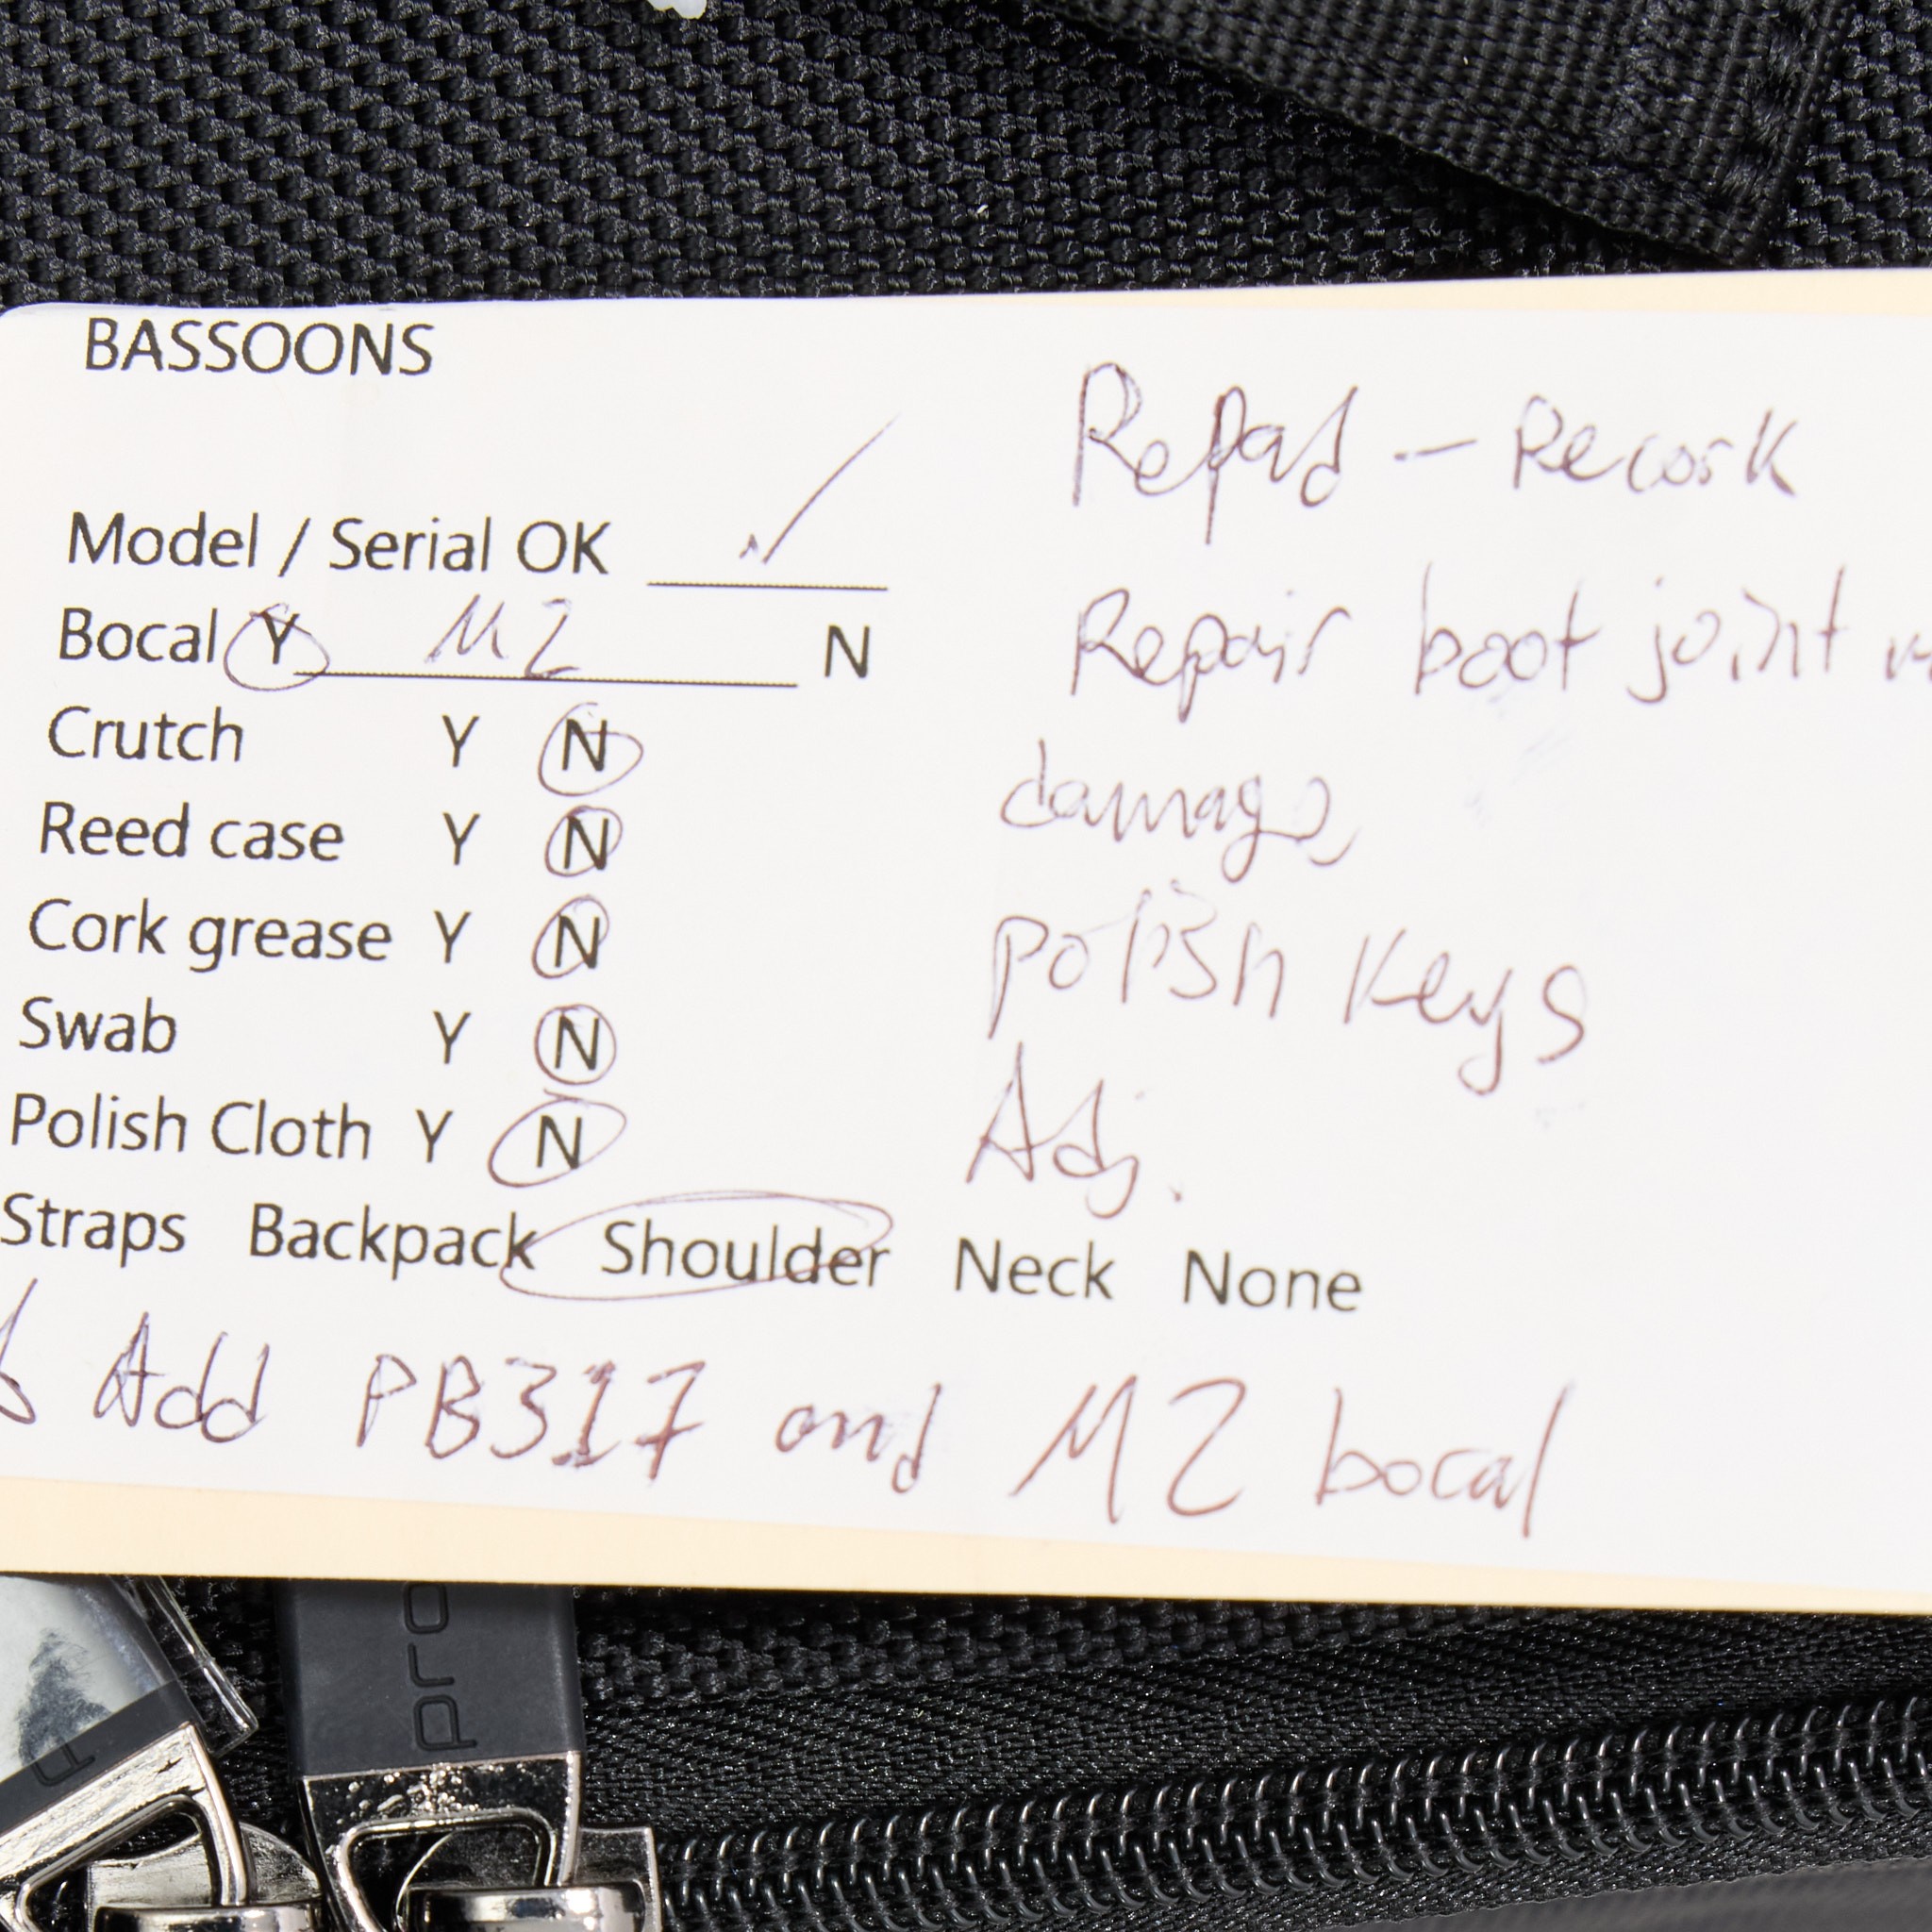 BASSOONS
Model / Serial OK ✓
Bocal Y M2 N
Crutch Y N
Reed case Y N
Cork grease Y N
Swab Y N
Polish Cloth Y N
Straps Backpack Shoulder Neck None
Repad - Recork
Repair boot joint
damage
polish keys
Adj.
Add PB317 and M2 bocal
pro